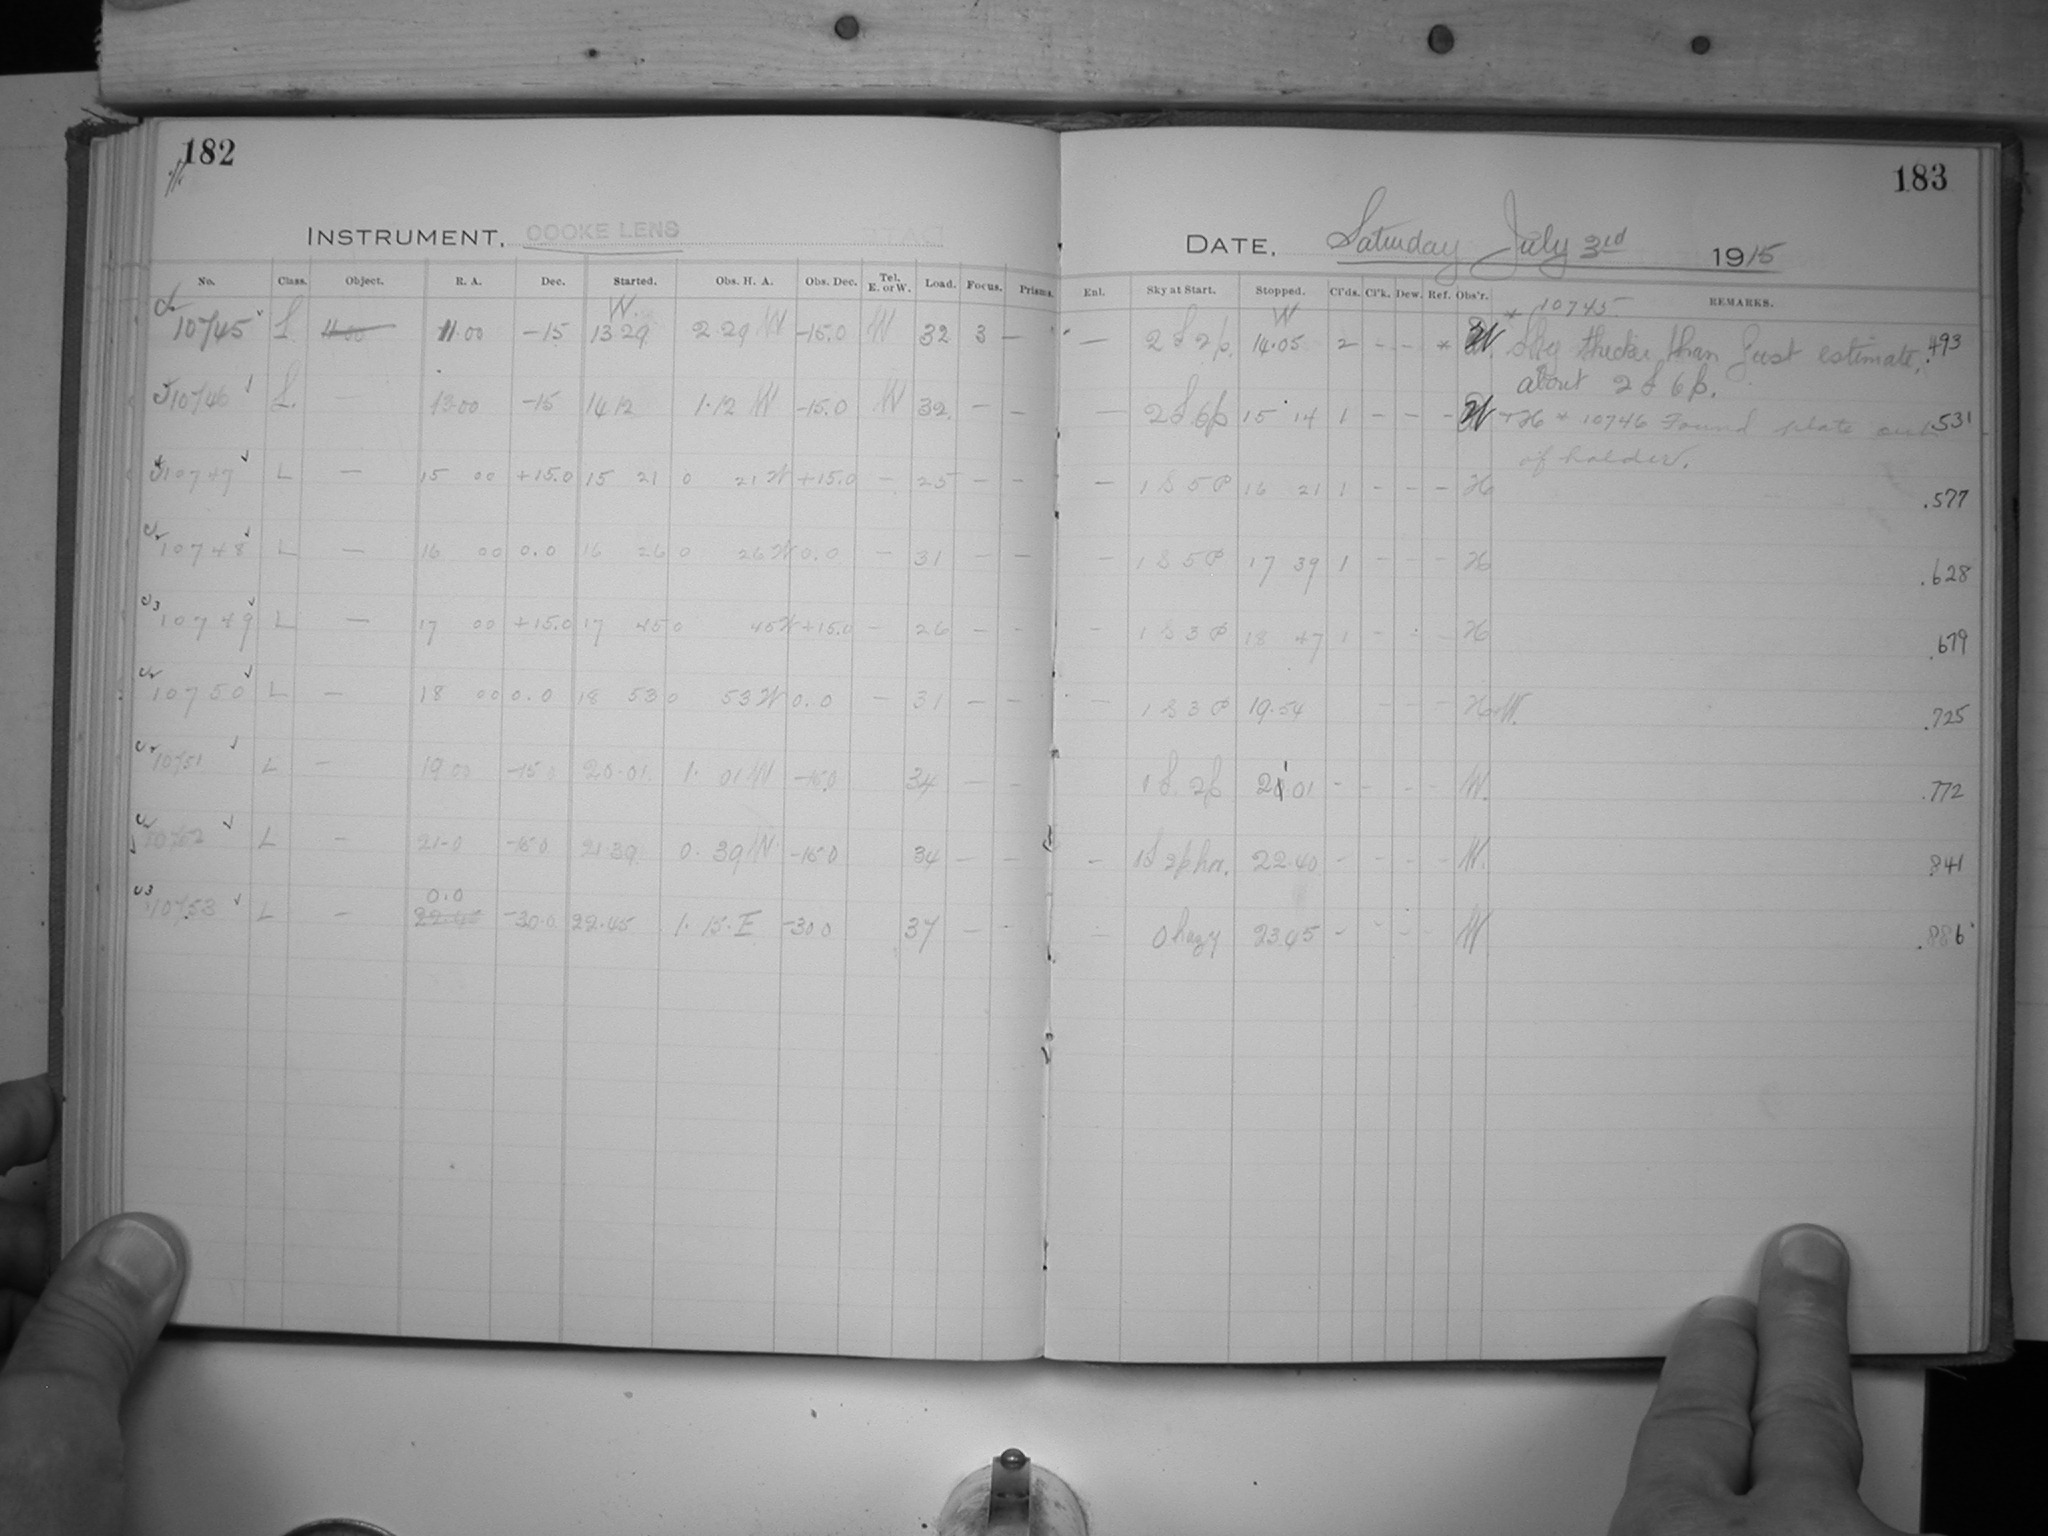 182
INSTRUMENT, COOKE LENS
No. Class. Object. R. A. Dec. Started. Obs. H. A. Obs. Dec. Tel. E. or W. Load. Focus. Prisms.
W.
10745 L 11.00 11.00 -15 13 29 2 29 W -15.0 W 32 3 —
10746 L. — 13.00 -15 14 12 1.12 W -15.0 W 32. — —
10747 L — 15 00 +15.0 15 21 0 21 W +15.0 — 25 — —
10748 L — 16 00 0.0 16 26 0 26 W 0.0 — 31 — —
10749 L — 17 00 +15.0 17 45 0 45 W +15.0 — 26 — —
10750 L — 18 00 0.0 18 53 0 53 W 0.0 — 31 — —
10751 L — 19 00 -15 0 20.01. 1. 01 W -15.0 34 — —
10752 L — 21-0 -15 0 21.39 0. 39 W -15 0 34 — —
0.0
10753 L — 22.45 -30.0 22.45 1. 15. E -30 0 37 — —
183
DATE, Saturday July 3rd 1915
Enl. Sky at Start. Stopped. Cl'ds. Cl'k. Dew. Ref. Obs'r. REMARKS.
W * 10745.
— 2 S 2p. 14.05 2 - - * W. Sky thicker than first estimate, .493
about 2 S 6p.
— 2 S 6p 15 14 1 - - - W + H * 10746 Found plate out .531
of holder.
— 1 S 5 P 16 21 1 - - - H .577
— 1 S 5 P 17 39 1 - - - H .628
— 1 S 3 P 18 47 1 - - - H .679
— 1 S 3 P 19.54 - - - H+W. .725
1 S. 2p 21 01 - - - - W. .772
— 1 S 2p hor. 22.40 - - - - W. .841
— 0 hazy 23.45 - - - - W .886